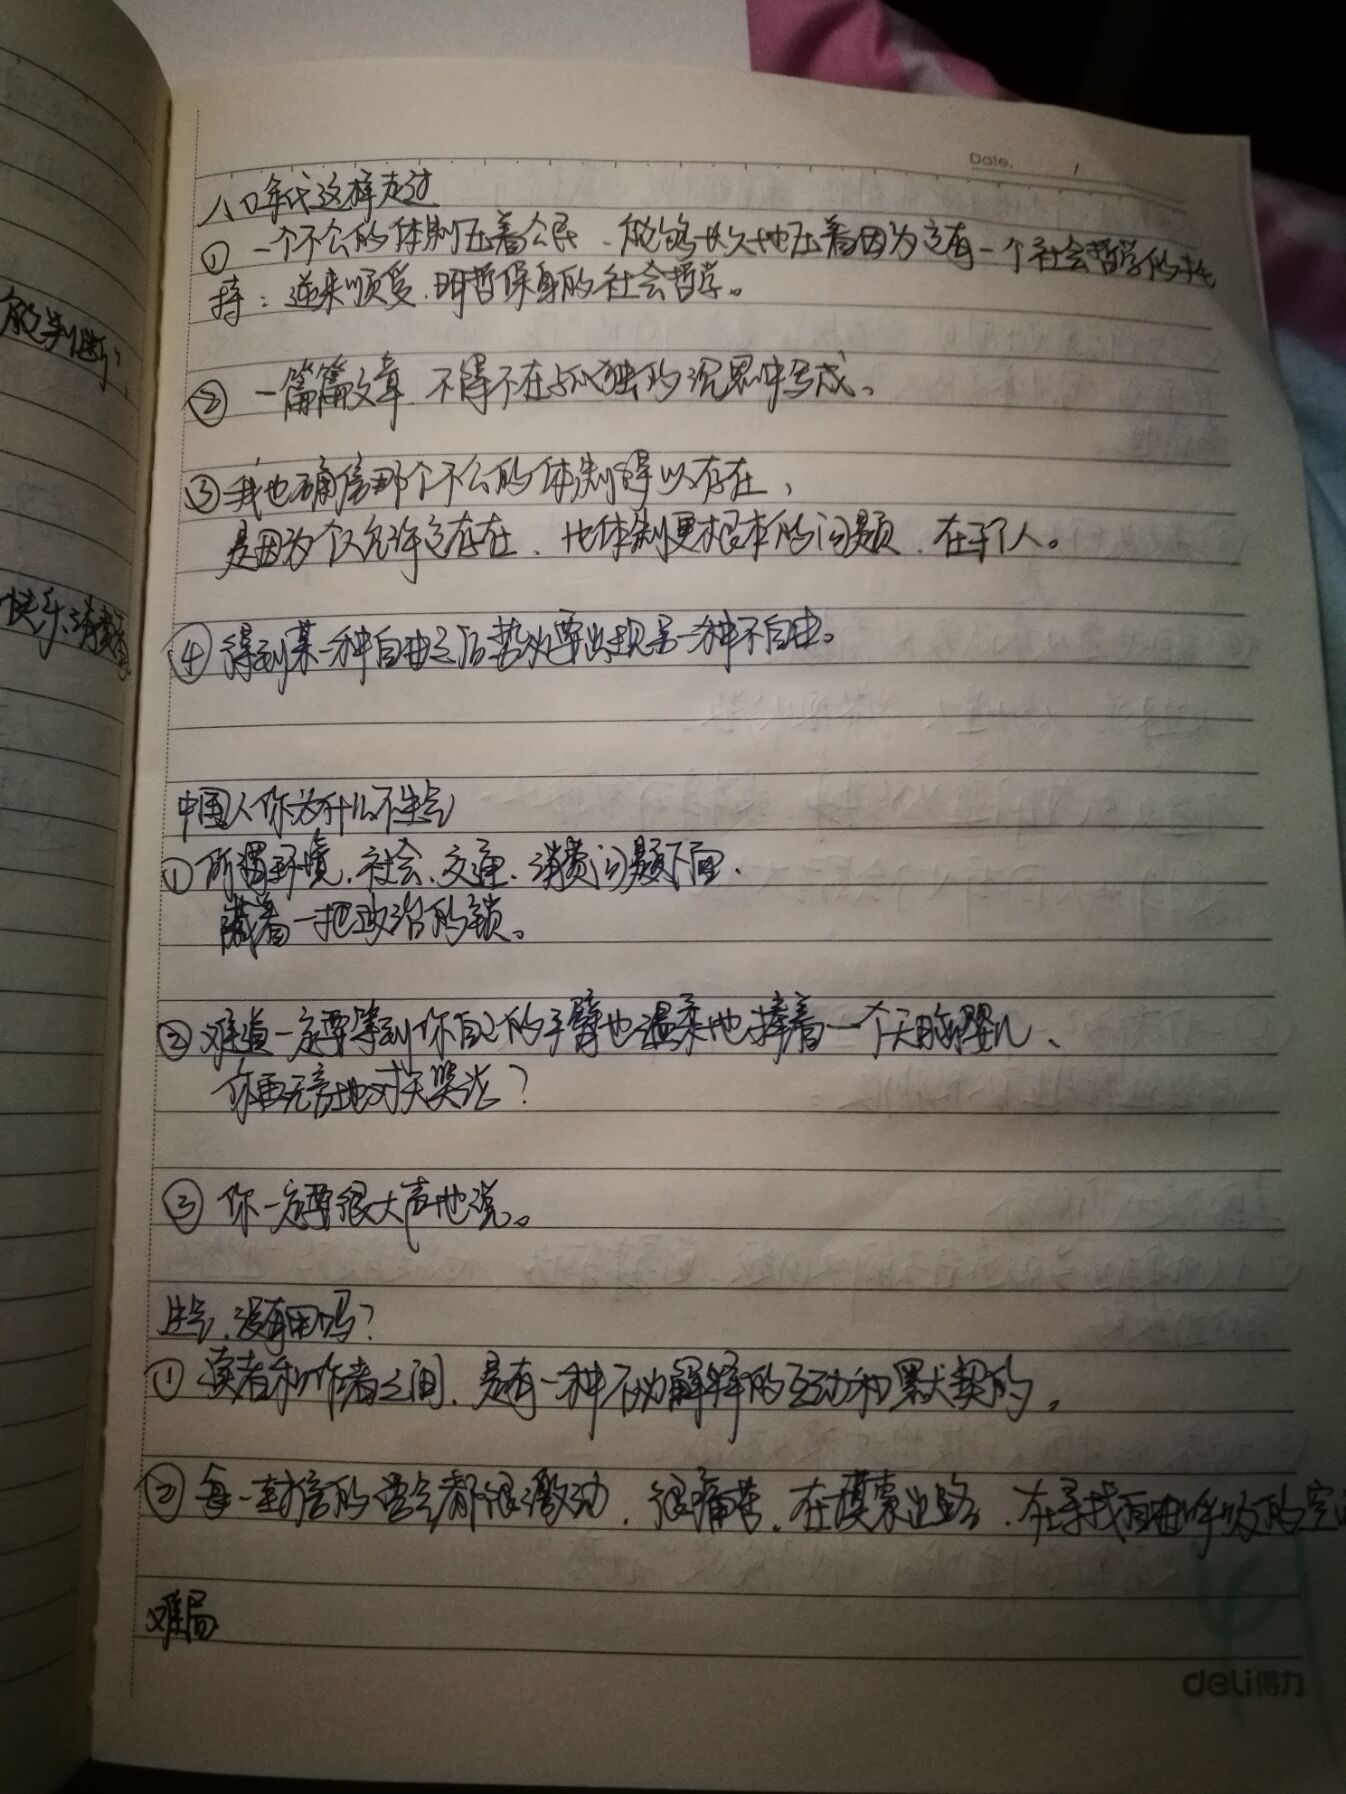 Date.
八〇年代这样走过
① 一个不公的体制压着公民、能够长久地压着因为它有一个社会哲学的扶
持：逆来顺受、明哲保身的社会哲学。
② 一篇篇文章、不得不在孤独的沉思中写成。
③ 我也确信那个不公的体制得以存在，
是因为个人允许它存在、比体制更根本的问题、在于个人。
④ 得到某一种自由之后势必要出现另一种不自由。
中国人你为什么不生气
① 所谓环境、社会、交通、消费问题下面、
藏着一把政治的锁。
② 难道一定要等到你自己的手臂也温柔地捧着一个无脑婴儿、
你再无言地对天哭泣？
③ 你一定要很大声地说。
生气、没有用吗？
① 读者和作者之间、是有一种不必解释的互动和默契的，
② 每一封信的语气都很激动、很痛苦、在摸索出路、在寻找自由呼吸的空
难局
deli得力
般判断
快乐、消费